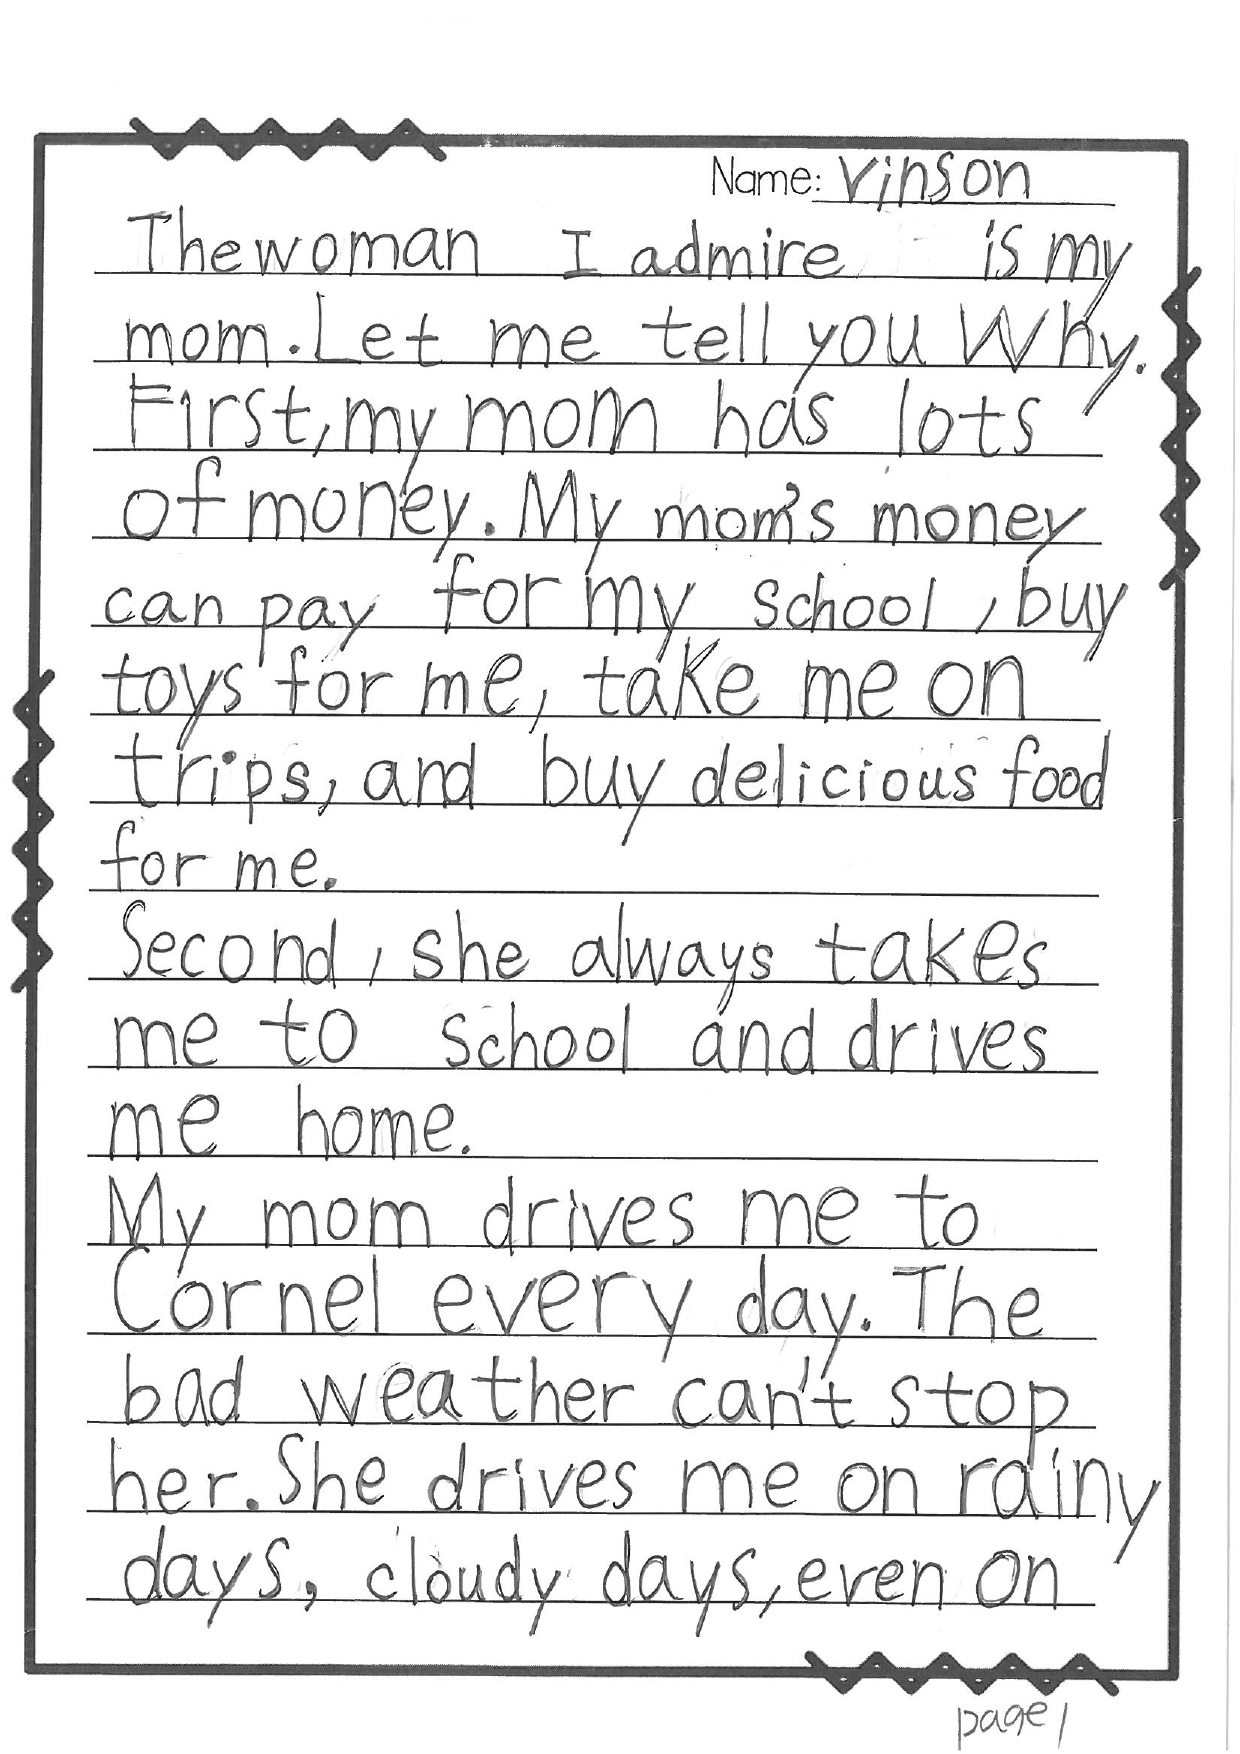 Name: Vinson
The woman I admire is my
mom. Let me tell you Why.
First, my mom has lots
of money. My mom's money
can pay for my school, buy
toys for me, take me on
trips, and buy delicious food
for me.
Second, she always takes
me to school and drives
me home.
My mom drives me to
Cornel every day. The
bad weather can't stop
her. She drives me on rainy
days, cloudy days, even on
page 1